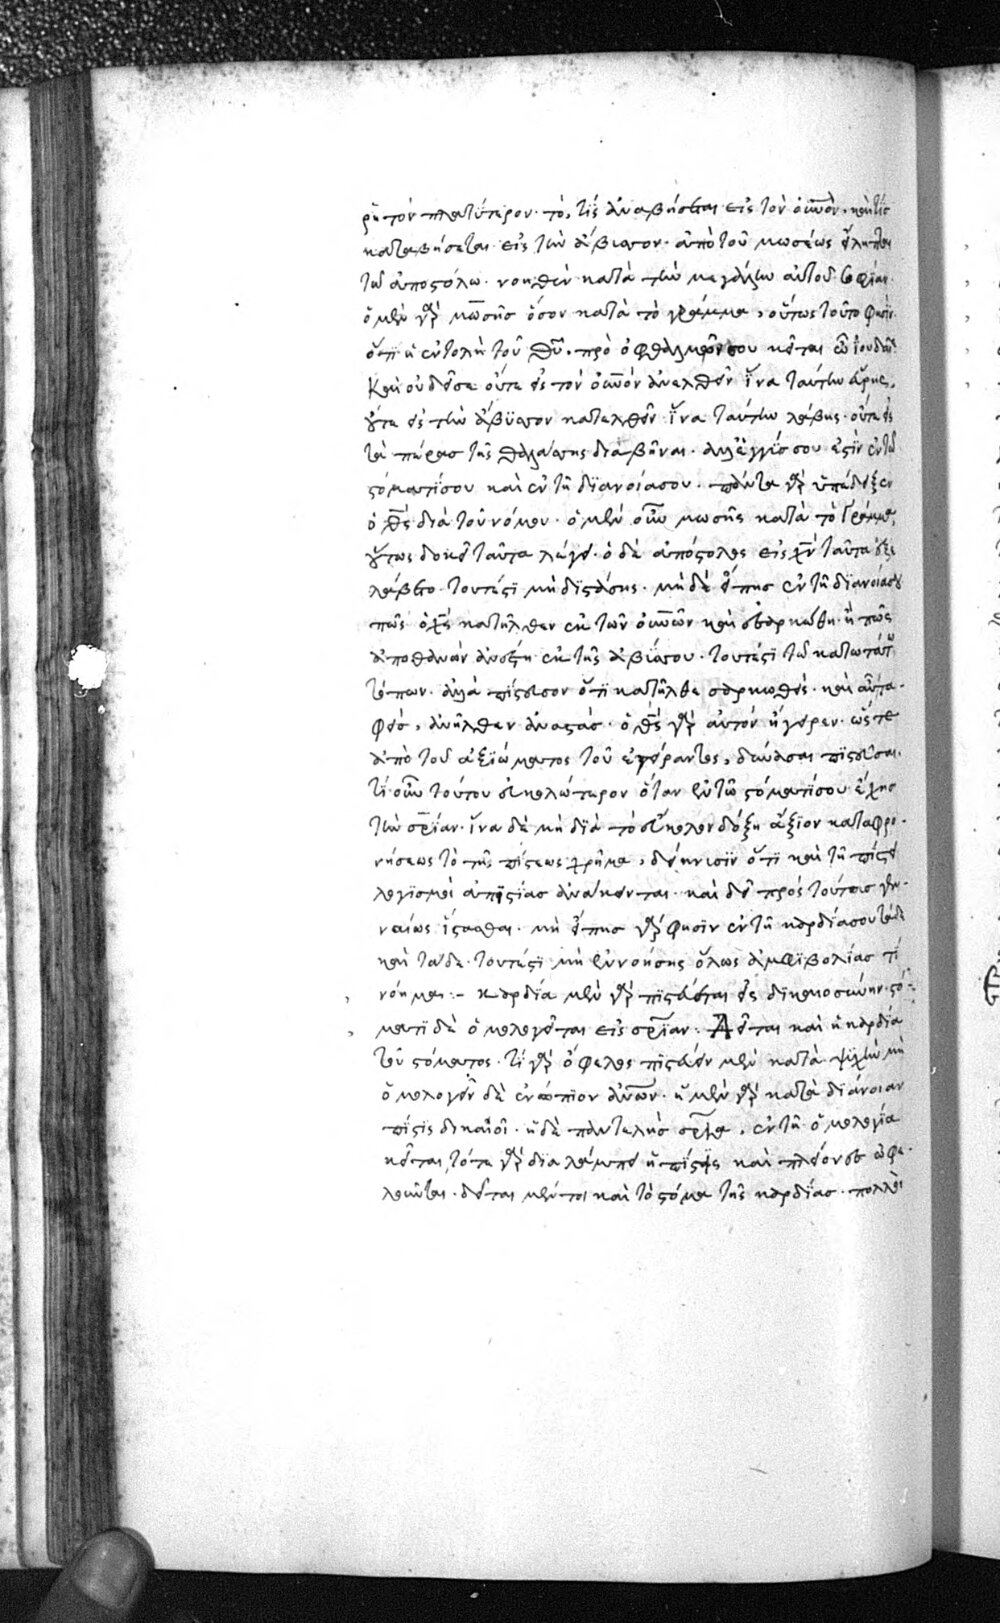 ρητὸν πλατύτερον. τὸ, τίς ἀναβήσεται εἰς τὸν οὐνὸν, καὶ τίς
καταβήσεται εἰς τὴν ἄβυσσον. ἀπὸ τοῦ μωσέως εἴληπται
τῶ ἀποστόλω. νοηθὲν κατὰ τὴν μεγάλην αὐτοῦ σοφίαν.
ὁ μὲν γὰρ μωσῆς ὅσον κατὰ τὸ γράμμα, οὕτως τοῦτο φησίν.
ὅτι ἡ ἐντολὴ τοῦ θυ, πρὸ ὀφθαλμῶν σου κεῖται ὦ ἰουδαῖε
καὶ οὐ δεῖ σε οὔτε εἰς τὸν οὐνὸν ἀνελθεῖν ἵνα ταύτην εὕρης,
οὔτε εἰς τὴν ἄβυσσον κατελθεῖν ἵνα ταύτην λάβης. οὔτε εἰς
τὰ πέρας τῆς θαλάσσης διαβῆναι. ἀλλ' ἐγγύς σου ἐστὶν ἐν τῶ
στόματί σου καὶ ἐν τῆ διανοία σου. πάντα γὰρ ὑπέδειξεν
ὁ θς διὰ τοῦ νόμου. ὁ μὲν οὖν μωσῆς κατὰ τὸ γράμμα,
οὕτως δοκεῖ ταῦτα λέγειν. ὁ δὲ ἀπόστολος εἰς χν ταῦτα
λάβετο. τουτέστι μὴ διστάσης. μὴ δὲ εἴπης ἐν τῆ διανοία σου
πῶς ὁ χς κατῆλθεν ἐκ τῶν οὐνῶν καὶ ἐσαρκώθη. ἢ πῶς
ἀποθανὼν ἀνέστη ἐκ τῆς ἀβύσσου. τουτέστι τῶ κατωτάτω
τόπων. ἀλλὰ πίστευσον ὅτι κατῆλθε σαρκωθείς. καὶ αὖ τα-
φείς, ἀνῆλθεν ἀναστάς. ὁ θς γὰρ αὐτὸν ἤγειρεν. ὥστε
ἀπὸ τοῦ ἀξιώματος τοῦ ἐγείραντος, δύνασαι πιστεῦσαι.
τί οὖν τούτου εὐκολώτερον ὅταν ἐν τῶ στόματί σου ἔχης
τὴν σρίαν. ἵνα δὲ μὴ διὰ τὸ εὔκολον δόξη ἄξιον καταφρο-
νήσεως τὸ τῆς πίστεως χρῆμα, δείκνυσιν ὅτι καὶ τῆ πίστει
λογισμοὶ ἀπιστίας ἀνάκεινται. καὶ δεῖ πρὸς τούτοις γεν-
ναίως ἵστασθαι. μὴ εἴπης γάρ φησιν ἐν τῆ καρδία σου τάδε
καὶ τάδε. τουτέστι μὴ ἐννοήσης ὅλως ἀμφιβολίας τί
νόημα:- καρδία μὲν γὰρ πιστεύεται εἰς δικαιοσύνην. στό-
ματι δὲ ὁμολογεῖται εἰς σρίαν: Δεῖται καὶ ἡ καρδία
τοῦ στόματος. τί γὰρ ὄφελος πιστεύειν μὲν κατὰ ψυχὴν μὴ
ὁμολογεῖν δὲ ἐνώπιον ἀνων. ἡ μὲν γὰρ κατὰ διάνοιαν
πίστις δικαιοῖ. ἡ δὲ παντελὴς σρία, ἐν τῆ ὁμολογία
κεῖται, τότε γὰρ διαλάμπει ἡ πίστις καὶ πλείονες ὠφε-
λοῦνται. δεῖται μέντοι καὶ τὸ στόμα τῆς καρδίας. πολλοὶ